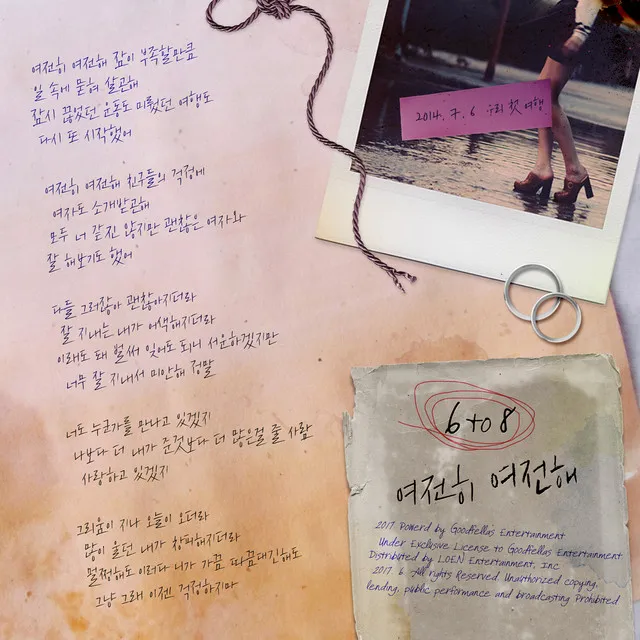 여전히 여전해 잠이 부족할만큼
일 속에 묻혀 살곤해
잠시 끊었던 운동도 미뤘던 여행도
다시 또 시작했어
여전히 여전해 친구들의 걱정에
여자도 소개받곤해
모두 너 같진 않지만 괜찮은 여자와
잘 해보기도 했어
다들 그러잖아 괜찮아지더라
잘 지내는 내가 어색해지더라
이래도 돼 벌써 잊어도 되니 서운하겠지만
너무 잘 지내서 미안해 정말
너도 누군가를 만나고 있겠지
나보다 더 내가 준것보다 더 많은걸 줄 사람
사랑하고 있겠지
그리움이 지나 오늘이 오더라
많이 울던 내가 창피해지더라
멀쩡해도 이러다 니가 가끔 따끔대긴해도
그냥 그래 이젠 걱정하지마
2014. 7. 6 우리 첫 여행
6 to 8
여전히 여전해
2017 Powerd by Goodfellas Entertainment
Under Exclusive License to Goodfellas Entertainment
Distributed by LOEN Entertainment, Inc
2017. 6. All rights Reserved. Unauthorized copying,
lending, public performance and broadcasting Prohibited